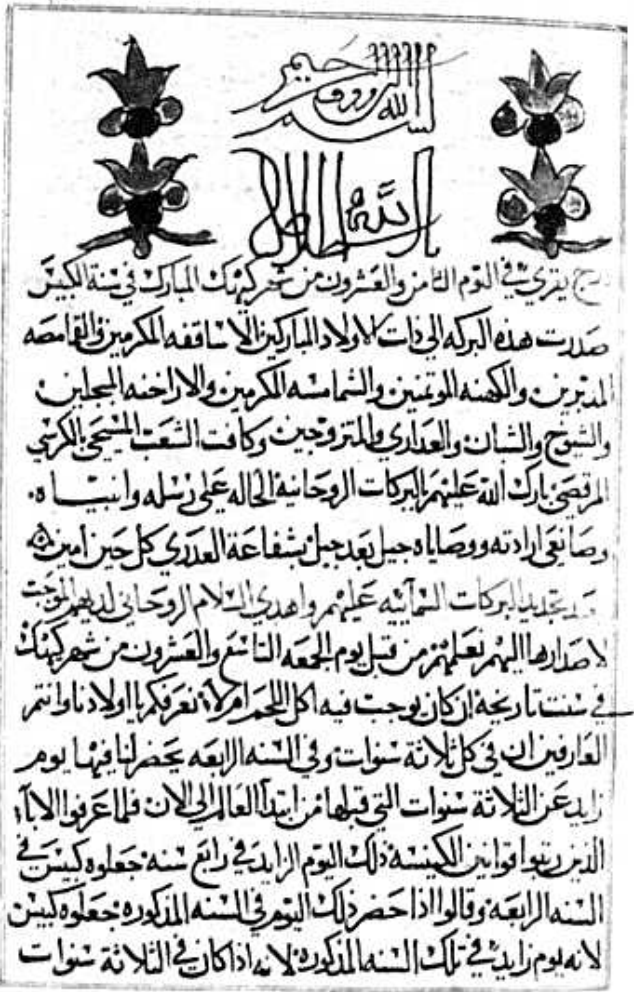 بسم الله الرووف الرحيم
بالله السلطان
درج يقري في اليوم الثامن والعشرون من شهر كيهك المبارك في سنة الكبيس
صدرت هذه البركه الي ذات الاولاد المباركين الاساقفه المكرمين والقمامصه
المدبرين والكهنه الموتمنين والشمامسه المكرمين والاراخنه المبجلين
والشيوخ والشبان والعداري والمتزوجين وكافت الشعب المسيحي بالكرسي
المرقصي بارك الله عليهم بالبركات الروحانية الحاله علي رسله وانبياه.
وصانعي ارادته ووصاياه جيل بعد جيل بشفاعة العدري كل حين امين
بعد تجديد البركات السمآئيه عليهم واهدي السلام الروحاني لديهم الموجب
لاصدارها اليهم نعلمهم من قبل يوم الجمعه التاسع والعشرون من شهر كيهك
في سنت تاريخه ان كان يوجب فيه اكل اللحم ام لا نعرفكم يا اولادنا وانتم
العارفين ان في كل ثلاثة سنوات وفي السنه الرابعه يحضر لنا فيها يوم
زايد عن الثلاثة سنوات التي قبلها من ابتدآ العالم الي الان فلما عرفوا الابآ
الذين رتبوا قوانين الكنيسه ذلك اليوم الزايد في رابع سنه جعلوه كبيس في
السنه الرابعه وقالوا اذا حضر ذلك اليوم في السنه المذكوره جعلوه كبيس
لانه يوم زايد في تلك السنه المذكوره لانه اذا كان في الثلاثة سنوات